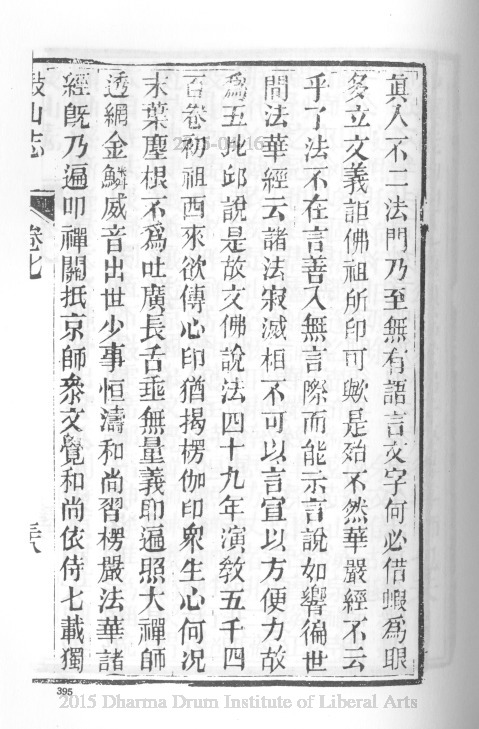 真入不二法門乃至無有語言文字何必借蝦為眼
多立文義詎佛祖所印可歟是殆不然華嚴經不云
乎了法不在言善入無言際而能示言說如響徧世
間法華經云諸法寂滅相不可以言宣以方便力故
為五比邱說是故文佛說法四十九年演教五千四
百卷初祖西來欲傳心印猶揭楞伽印衆生心何況
末葉塵根不為吐廣長舌垂無量義即遍照大禪師
透網金鱗威音出世少事恒濤和尚習楞嚴法華諸
經旣乃遍叩禪關抵京師衆文覺和尚依侍七載獨
鼓山志
卷七
三八
395
2015 Dharma Drum Institute of Liberal Arts